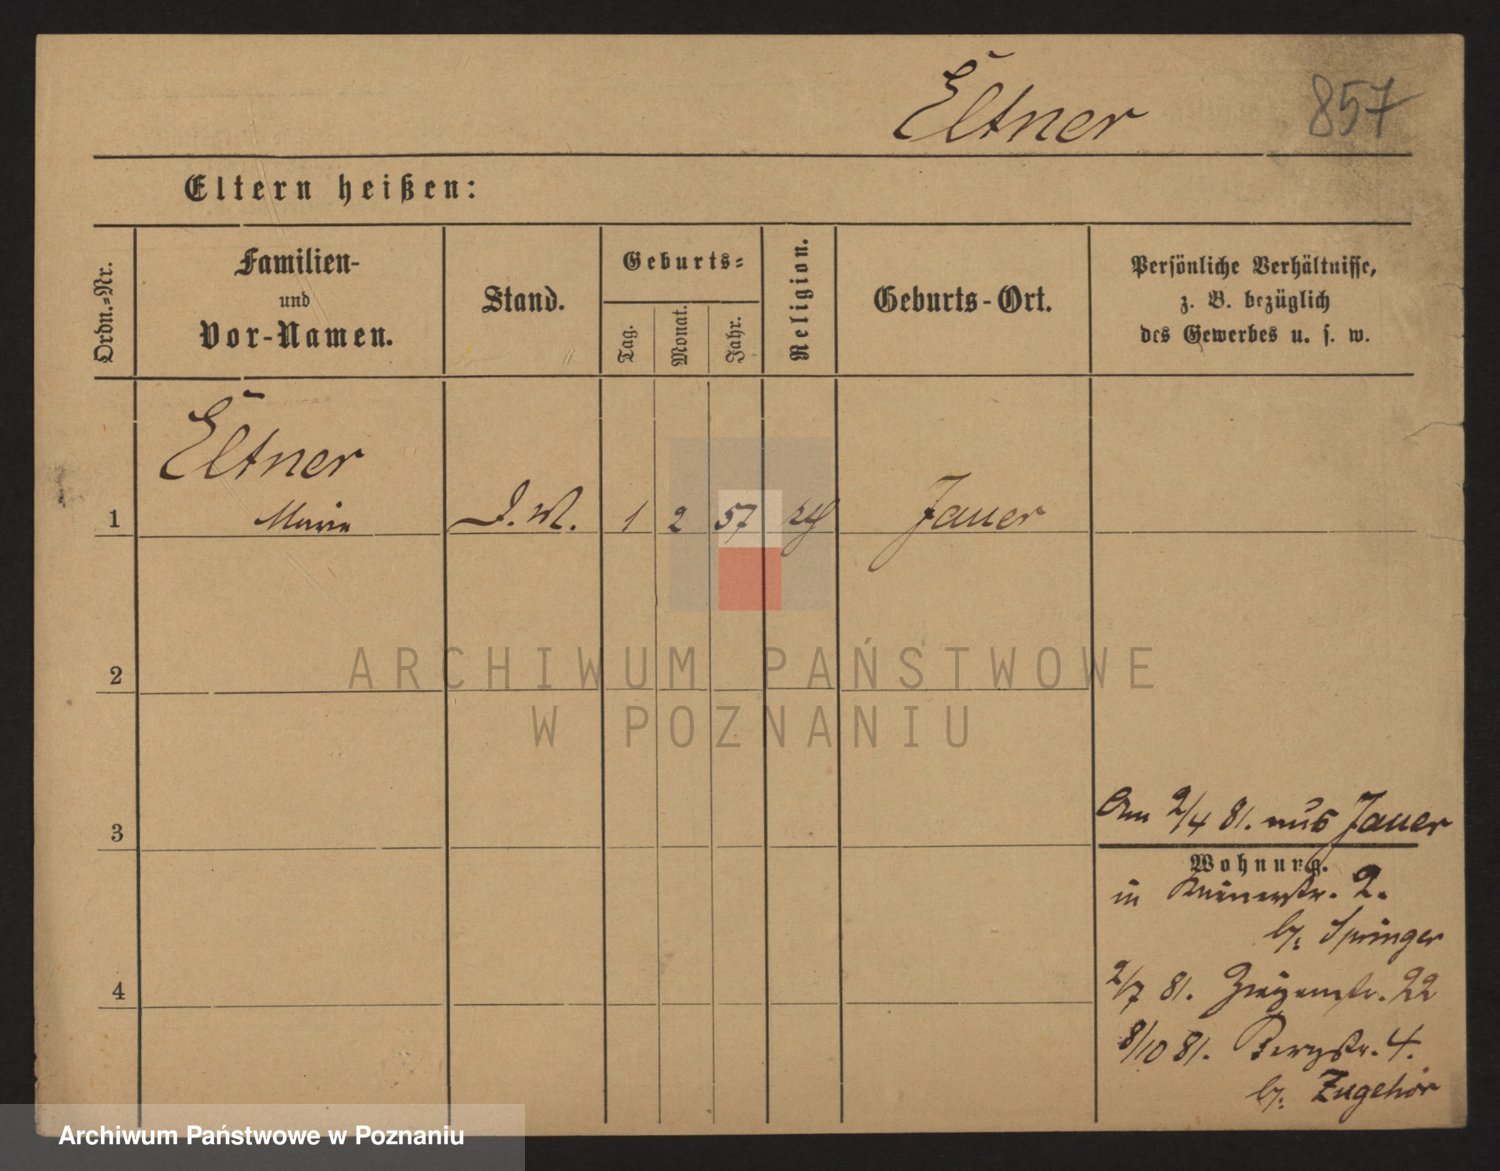 Eltner 857
Eltern heißen:
Ordn.-Nr.
Familien-
und
Vor-Namen.
Stand.
Geburts-
Tag.
Monat.
Jahr.
Religion.
Geburts-Ort.
Persönliche Verhältnisse,
z. B. bezüglich
des Gewerbes u. s. w.
Eltner
1 Marie 1 2 57 Jauer
2
3
4
Am 2/4 81. aus Jauer
Wohnung.
in 2.
b: Springer
2/7 81. Ziegenstr. 22
8/10 81. Bergstr. 4.
b: Zugehör
ARCHIWUM PAŃSTWOWE
W POZNANIU
Archiwum Państwowe w Poznaniu